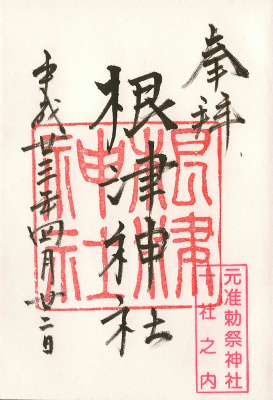 奉拝
根津神社
平成廿三年四月廿二日
根津神社
元准勅祭神社
十社之内